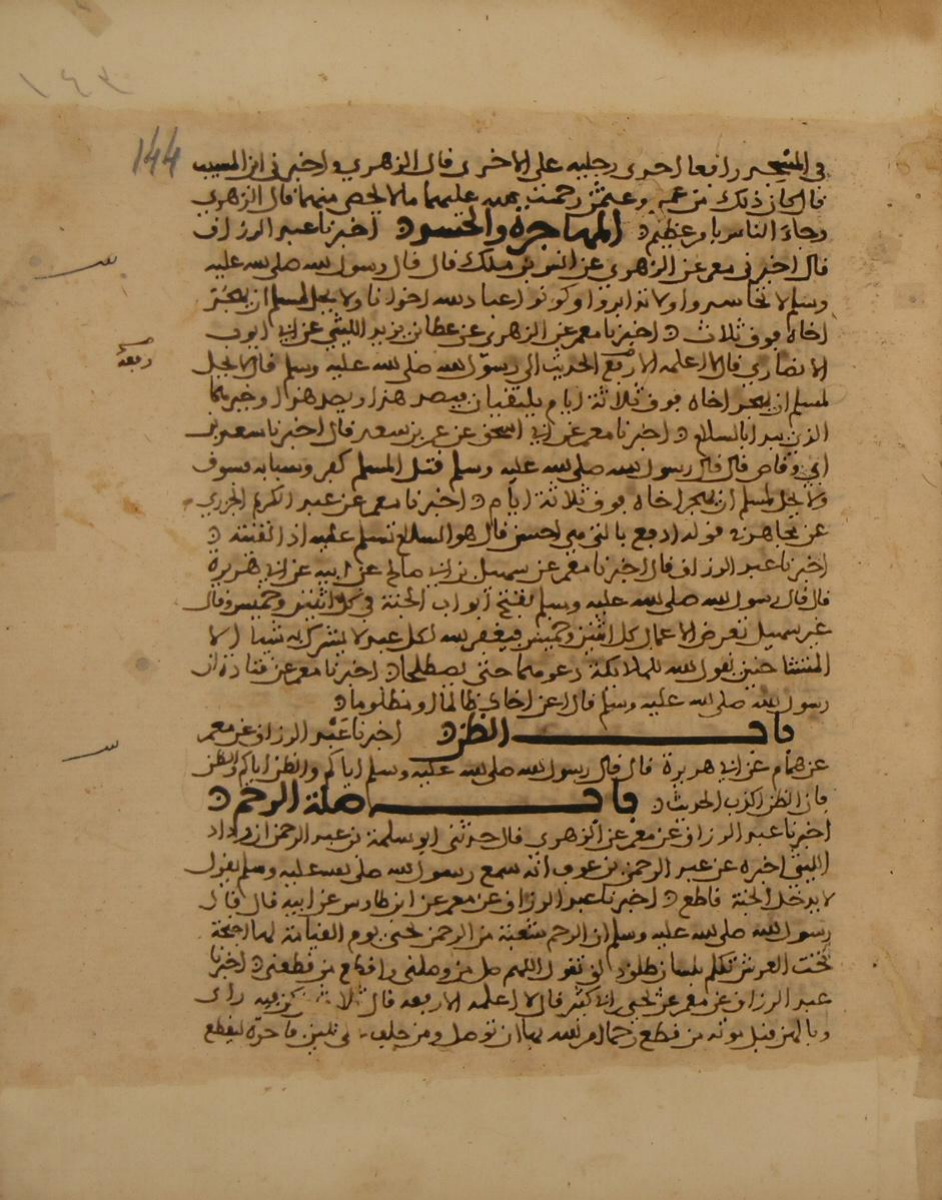 ١٤٣
144
في المسجد رافعا احدى رجليه على الاخرى قال الزهري واخبرني ابن المسيب
قال كان ذلك من عمر وعثمن رحمت الله عليهما ما لا يحصى منهما قال الزهري
وجاء الناس بامر عظيم ه المهاجرة والحسد ه اخبرنا عبد الرزاق
قال اخبرني معمر عن الزهري عن انس بن ملك قال قال رسول الله صلى الله عليه
وسلم لا تحاسدوا ولا تدابروا وكونوا عباد الله اخوانا ولا يحل لمسلم ان يهجر
اخاه فوق ثلاث ه اخبرنا معمر عن الزهري عن عطاء بن يزيد الليثي عن ابي ايوب
الانصاري قال لا اعلمه الا رفع الحديث الى رسول الله صلى الله عليه وسلم قال لا يحل
رفعه
لمسلم ان يهجر اخاه فوق ثلاثة ايام يلتقيان فيصد هذا ويصد هذا وخيرهما
الذي يبدا بالسلام ه اخبرنا معمر عن ابي اسحق عن عمر بن سعد قال اخبرنا سعد بن
ابي وقاص قال قال رسول الله صلى الله عليه وسلم قتل المسلم كفر وسبابه فسوق
ولا يحل لمسلم ان يهجر اخاه فوق ثلاثة ايام ه اخبرنا معمر عن عبد الكريم الجزري
عن مجاهد في قوله ادفع بالتي هي احسن قال هو السلام تسلم عليه اذا لقيته ه
اخبرنا عبد الرزاق قال اخبرنا معمر عن سهيل بن ابي صالح عن ابيه عن ابي هريرة
قال قال رسول الله صلى الله عليه وسلم تفتح ابواب الجنة في كل اثنين وخميس وقال
غير سهيل تعرض الاعمال كل اثنين وخميس فيغفر الله لكل عبد لا يشرك به شيا الا
المتشاحنين يقول الله للملائكة دعوهما حتى يصطلحا ه اخبرنا معمر عن قتادة ان
رسول الله صلى الله عليه وسلم قال اعن اخاك ظالما او مظلوما ه
باب الظن ه اخبرنا عبد الرزاق عن معمر
عن همام عن ابي هريرة قال قال رسول الله صلى الله عليه وسلم اياكم والظن اياكم والظن
فان الظن اكذب الحديث ه باب صلة الرحم ه
اخبرنا عبد الرزاق عن معمر عن الزهري قال حدثني ابو سلمة بن عبد الرحمن ان رداد
الليثي اخبره عن عبد الرحمن بن عوف انه سمع رسول الله صلى الله عليه وسلم يقول
لا يدخل الجنة قاطع ه اخبرنا عبد الرزاق عن معمر عن ابن طاوس عن ابيه قال قال
رسول الله صلى الله عليه وسلم ان الرحم شعبة من الرحمن تجي يوم القيامة لها
تحت العرش تكلم بلسان طلق تقول اللهم صل من وصلني واقطع من قطعني ه اخبرنا
عبد الرزاق عن معمر عن يحيى بن ابي كثير قال لا اعلمه الا رفعه قال ثلاث من كن فيه راى
وبالهن قبل موته من قطع رحما امر الله بها ان توصل ومن حلف على يمين فاجرة ليقطع